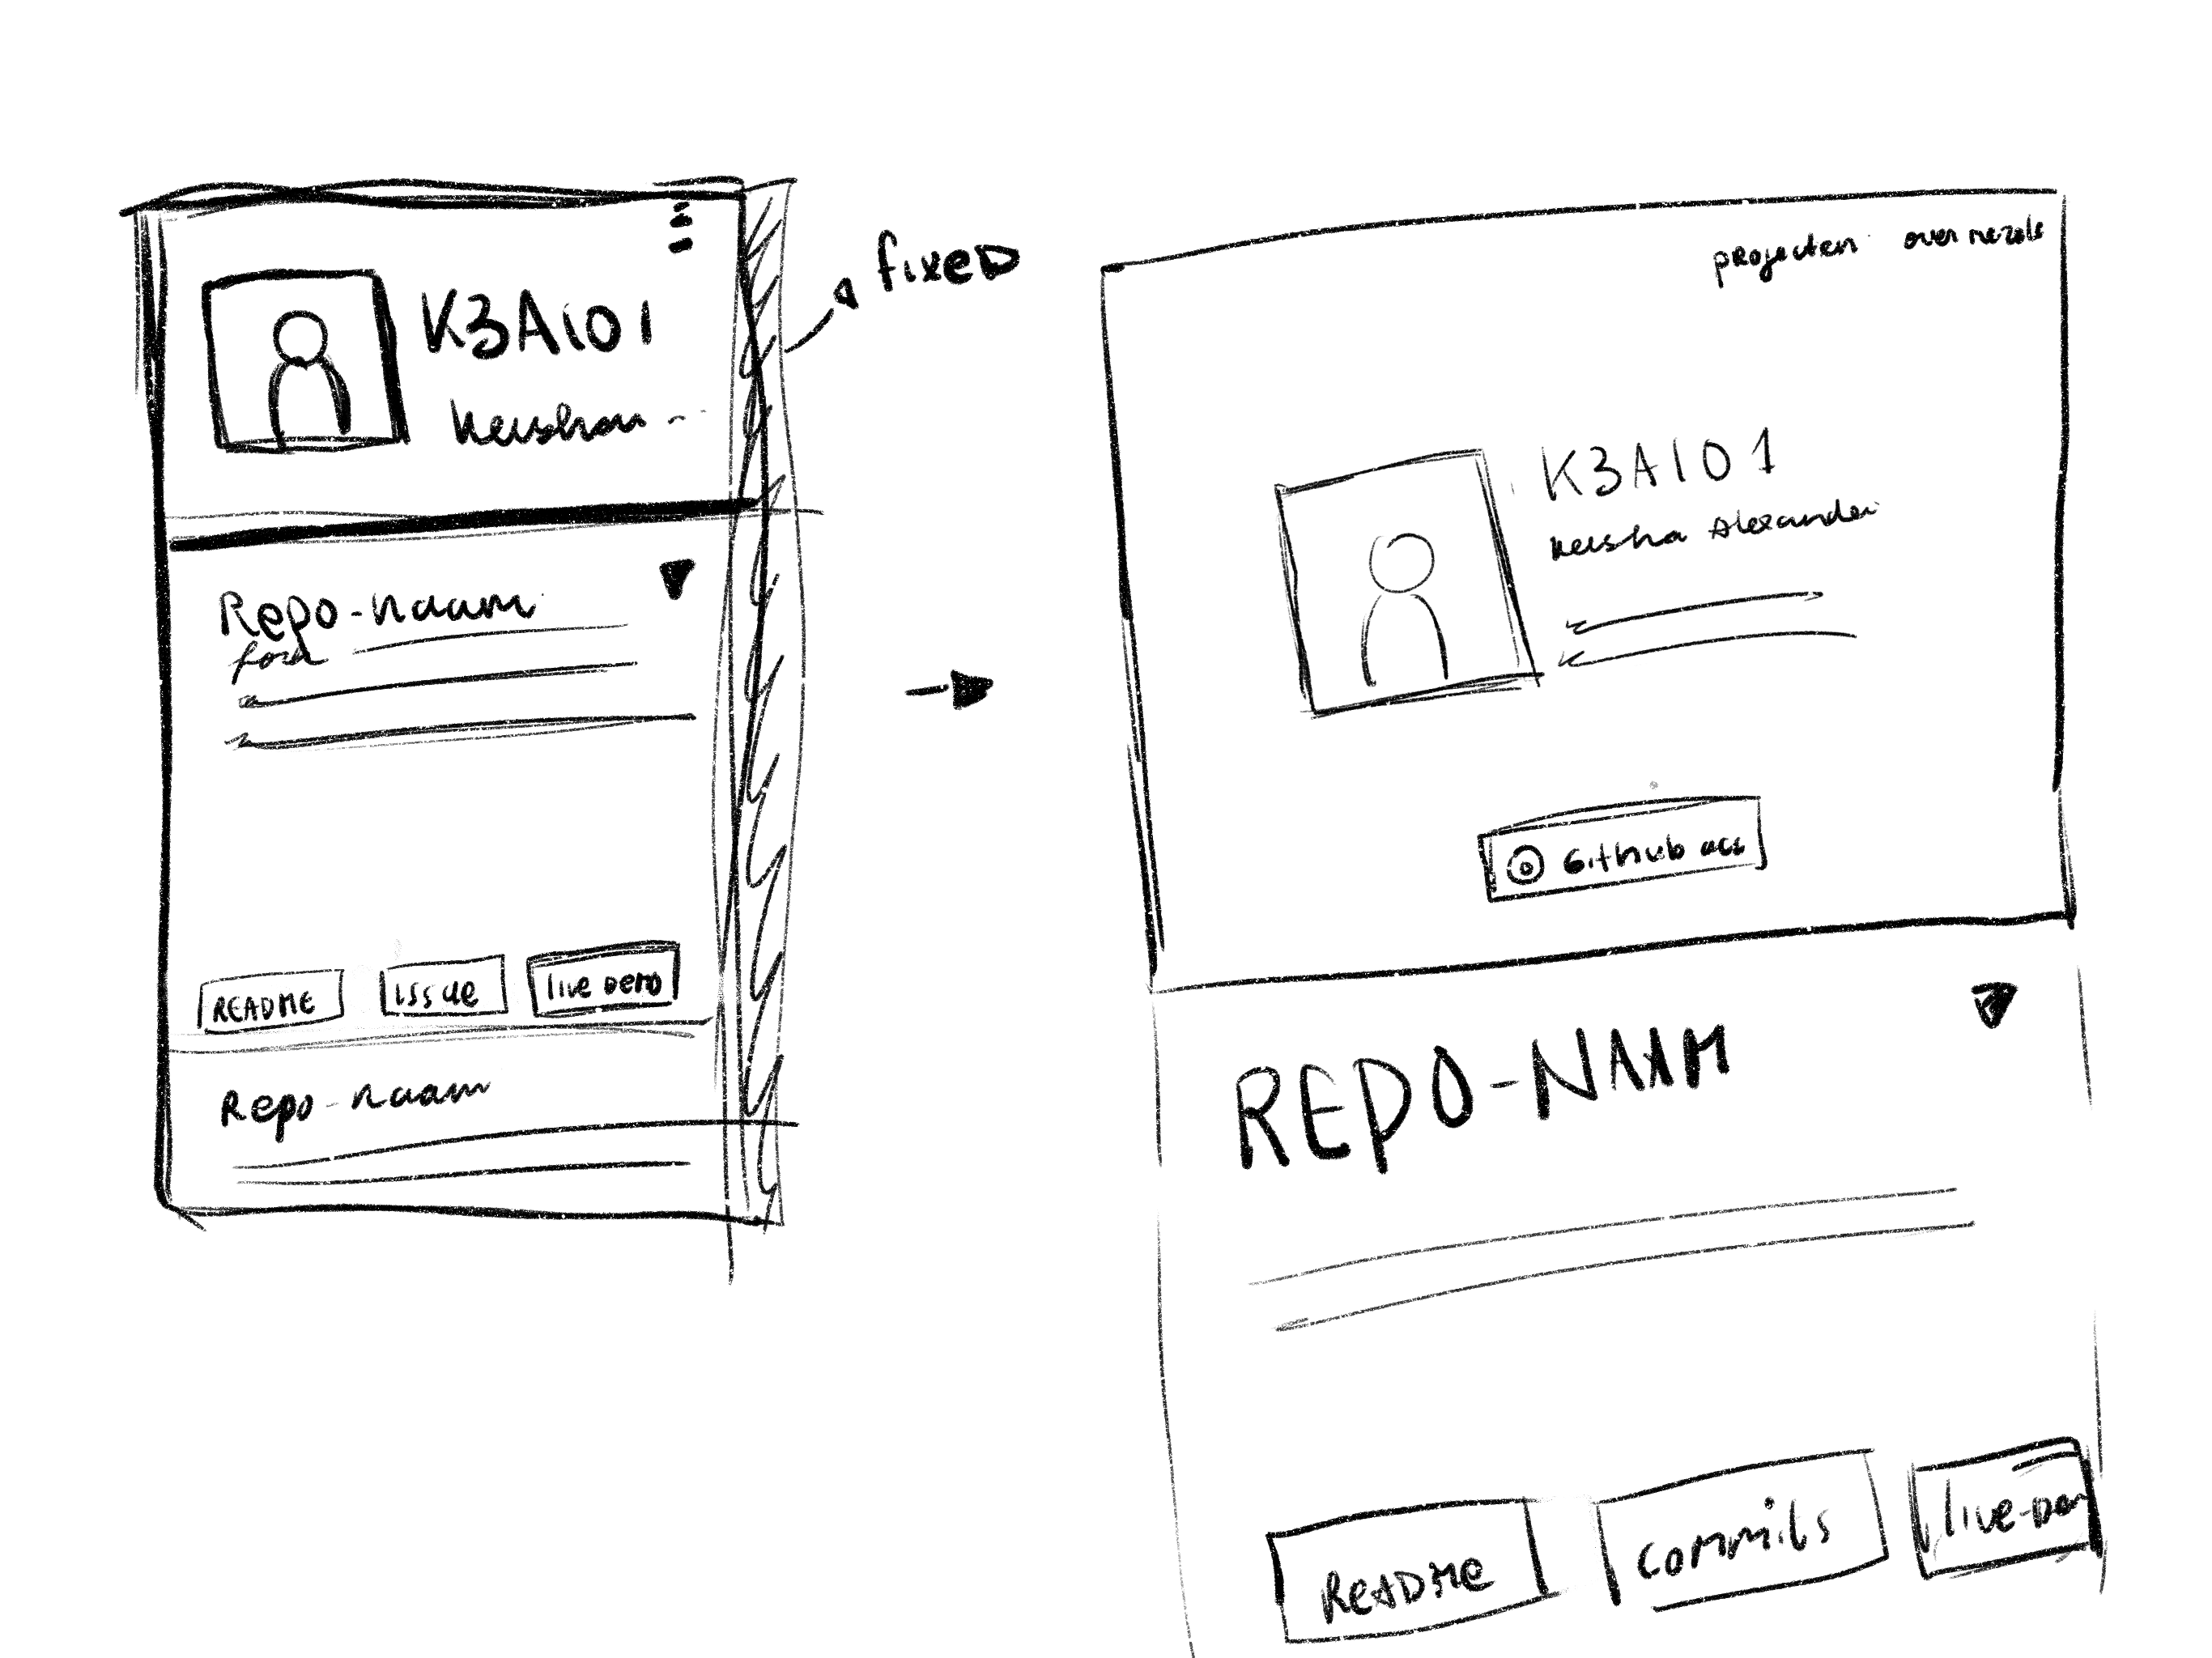 fixed
K3A101
Keisha
Repo-naam
README
issue
live Demo
Repo-naam
projecten
K3A101
Keisha Alexander
Github acc
REPO-NAAM
README
commits
live-Dem